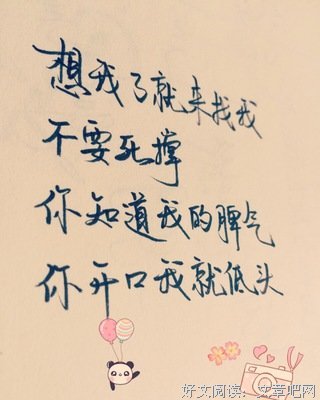 想我了就来找我
不要死撑
你知道我的脾气
你开口我就低头
好文阅读：文章吧网